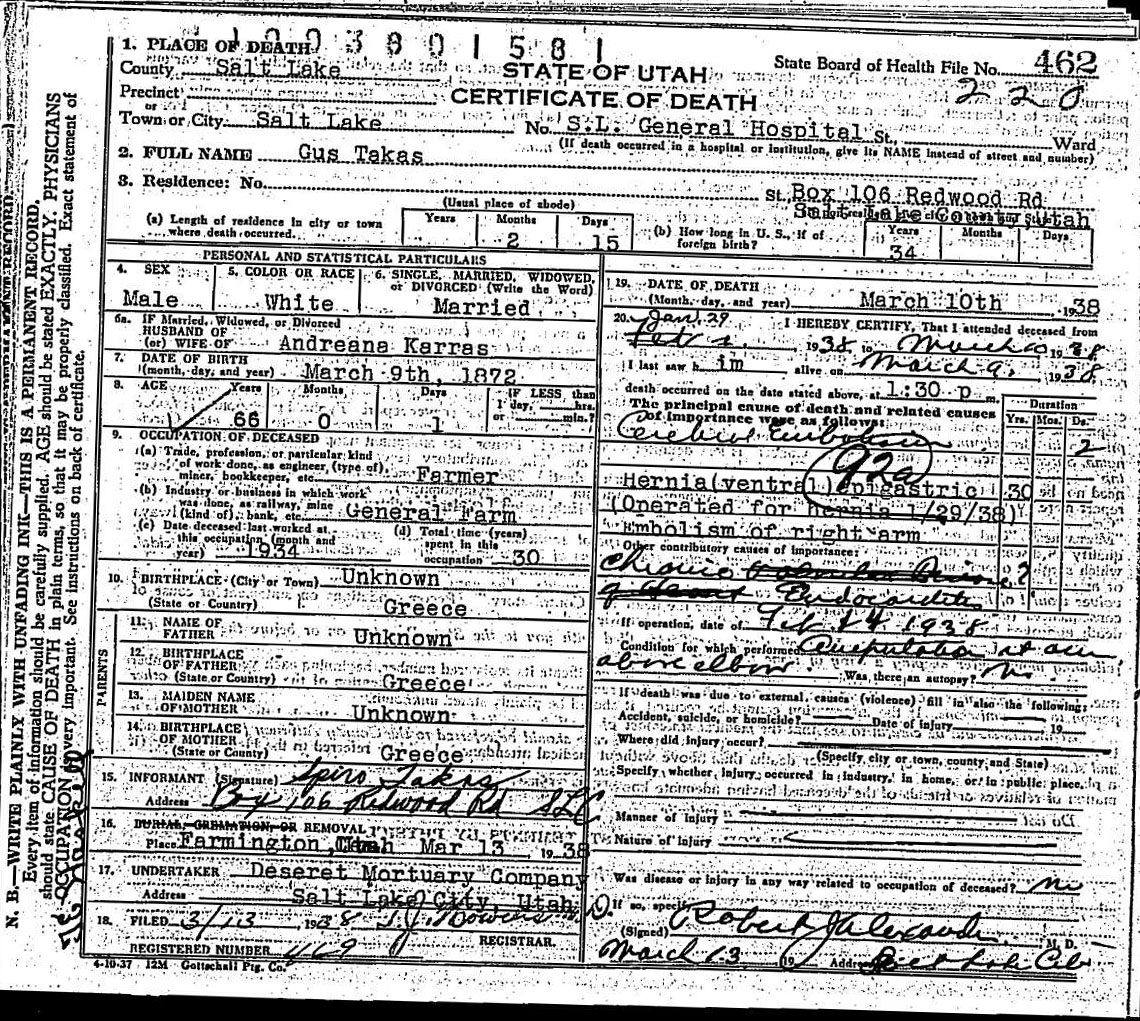 1003801581
1. PLACE OF DEATH
County Salt Lake
STATE OF UTAH
State Board of Health File No. 462
Precinct
CERTIFICATE OF DEATH
220
or
Town or City Salt Lake No. S.L. General Hospital St., Ward
(If death occurred in a hospital or institution, give its NAME instead of street and number)
2. FULL NAME Gus Takas
3. Residence: No. St. Box 106 Redwood Rd
(Usual place of abode)
Salt Lake County, Utah
(a) Length of residence in city or town where death occurred. Years Months 2 Days 15
(b) How long in U. S., if of foreign birth? Years 34 Months Days
PERSONAL AND STATISTICAL PARTICULARS
4. SEX Male
5. COLOR OR RACE White
6. SINGLE, MARRIED, WIDOWED, or DIVORCED (Write the Word) Married
6a. If Married, Widowed, or Divorced
HUSBAND OF
(or) WIFE OF Andreana Karras
7. DATE OF BIRTH
(month, day, and year) March 9th, 1872
8. AGE Years 66 Months 0 Days 1 IF LESS than 1 day, hrs. or min.?
9. OCCUPATION OF DECEASED
(a) Trade, profession, or particular kind of work done, as engineer, (type of), miner, bookkeeper, etc. Farmer
(b) Industry or business in which work was done, as railway, mine (kind of), bank, etc. General Farm
(c) Date deceased last worked at this occupation (month and year) 1934
(d) Total time (years) spent in this occupation 30
10. BIRTHPLACE (City or Town) Unknown
(State or Country) Greece
PARENTS
11. NAME OF FATHER Unknown
12. BIRTHPLACE OF FATHER
(State or Country) Greece
13. MAIDEN NAME OF MOTHER Unknown
14. BIRTHPLACE OF MOTHER
(State or Country) Greece
15. INFORMANT (Signature) Spiro Takas
Address Box 106 Redwood Rd SLC
16. BURIAL, CREMATION, OR REMOVAL
Place Farmington, Utah Mar 13 1938
17. UNDERTAKER Deseret Mortuary Company
Address Salt Lake City, Utah
18. FILED 3/13 1938 T.J. Howells M.D.
REGISTRAR.
REGISTERED NUMBER 469
4-10-37 12M Gottschall Ptg. Co.
19. DATE OF DEATH
(Month, day, and year) March 10th 1938
20. I HEREBY CERTIFY, That I attended deceased from
Jan. 29
Feb 2. 1938 to March 10 1938
I last saw him alive on March 9, 1938
death occurred on the date stated above, at 1:30 p m.
The principal cause of death and related causes of importance were as follows:
Duration
Yrs. Mos. Ds.
Cerebral Embolism 2
92a
Hernia (ventral) epigastric 30
(Operated for hernia 1/29/38)
Embolism of right arm
Other contributory causes of importance:
Chronic ?
of Heart Endocarditis
If operation, date of Feb 14 1938
Condition for which performed Amputation rt arm
above elbow. Was there an autopsy? No.
If death was due to external causes (violence) fill in also the following:
Accident, suicide, or homicide? Date of injury 19
Where did injury occur?
(Specify city or town, county and State)
Specify whether injury occurred in industry, in home, or in public place.
Manner of injury
Nature of injury
Was disease or injury in any way related to occupation of deceased? No
If so, specify
(Signed) Robert J Alexander M. D.
March 13 19 Address Salt Lake City
N. B.—WRITE PLAINLY WITH UNFADING INK—THIS IS A PERMANENT RECORD.
Every item of information should be carefully supplied. AGE should be stated EXACTLY. PHYSICIANS
should state CAUSE OF DEATH in plain terms, so that it may be properly classified. Exact statement of
OCCUPATION is very important. See instructions on back of certificate.